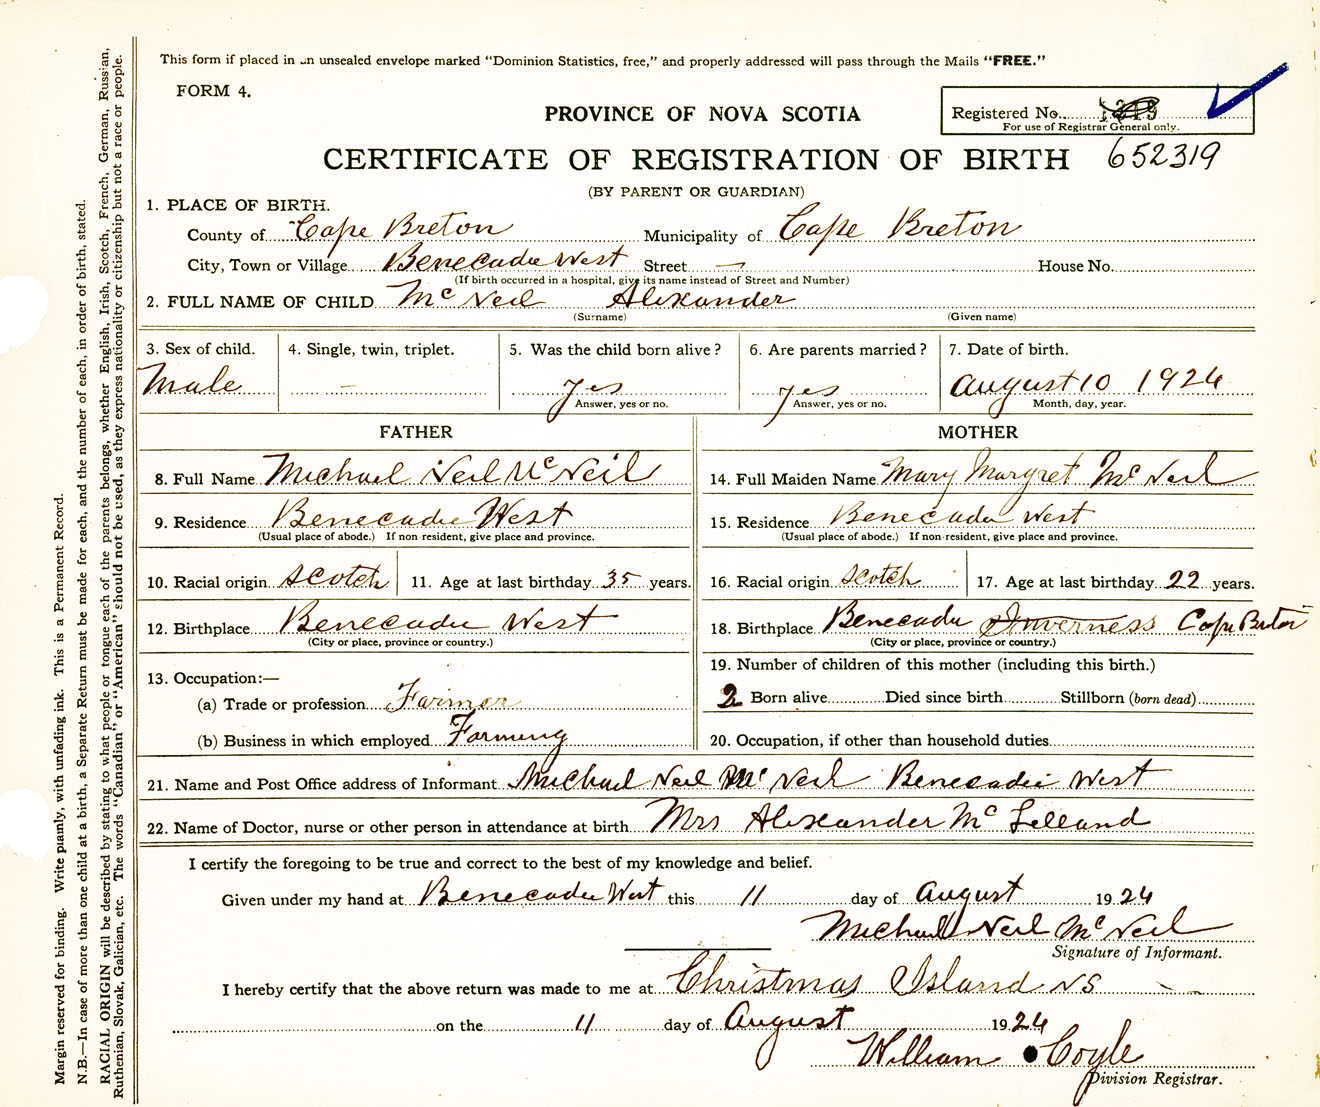 This form if placed in an unsealed envelope marked "Dominion Statistics, free," and properly addressed will pass through the Mails "FREE."
FORM 4.
PROVINCE OF NOVA SCOTIA
Registered No.
For use of Registrar General only.
CERTIFICATE OF REGISTRATION OF BIRTH 652319
(BY PARENT OR GUARDIAN)
1. PLACE OF BIRTH.
County of Cape Breton Municipality of Cape Breton
City, Town or Village Benecadie West Street — House No.
(If birth occurred in a hospital, give its name instead of Street and Number)
2. FULL NAME OF CHILD McNeil Alexander
(Surname) (Given name)
3. Sex of child. 4. Single, twin, triplet. 5. Was the child born alive? 6. Are parents married? 7. Date of birth.
Male — yes yes August 10 1924
Answer, yes or no. Answer, yes or no. Month, day, year.
FATHER MOTHER
8. Full Name Michael Neil McNeil 14. Full Maiden Name Mary Margret McNeil
9. Residence Benecadie West 15. Residence Benecadie West
(Usual place of abode.) If non-resident, give place and province. (Usual place of abode.) If non-resident, give place and province.
10. Racial origin Scotch 11. Age at last birthday 35 years. 16. Racial origin Scotch 17. Age at last birthday 22 years.
12. Birthplace Benecadie West 18. Birthplace Benecadie Inverness Cape Breton
(City or place, province or country.) (City or place, province or country.)
13. Occupation:— 19. Number of children of this mother (including this birth.)
(a) Trade or profession Farmer 2 Born alive Died since birth Stillborn (born dead)
(b) Business in which employed Farming 20. Occupation, if other than household duties
21. Name and Post Office address of Informant Michael Neil McNeil Benecadie West
22. Name of Doctor, nurse or other person in attendance at birth Mrs Alexander McLelland
I certify the foregoing to be true and correct to the best of my knowledge and belief.
Given under my hand at Benecadie West this 11 day of August 1924
Michael Neil McNeil
Signature of Informant.
I hereby certify that the above return was made to me at Christmas Island NS
on the 11 day of August 1924
William Coyle
Division Registrar.
Margin reserved for binding. Write plainly, with unfading ink. This is a Permanent Record.
N.B.—In case of more than one child at a birth, a Separate Return must be made for each, and the number of each, in order of birth, stated.
RACIAL ORIGIN will be described by stating to what people or tongue each of the parents belongs, whether English, Irish, Scotch, French, German, Russian,
Ruthenian, Slovak, Galician, etc. The words "Canadian" or "American" should not be used, as they express nationality or citizenship but not a race or people.